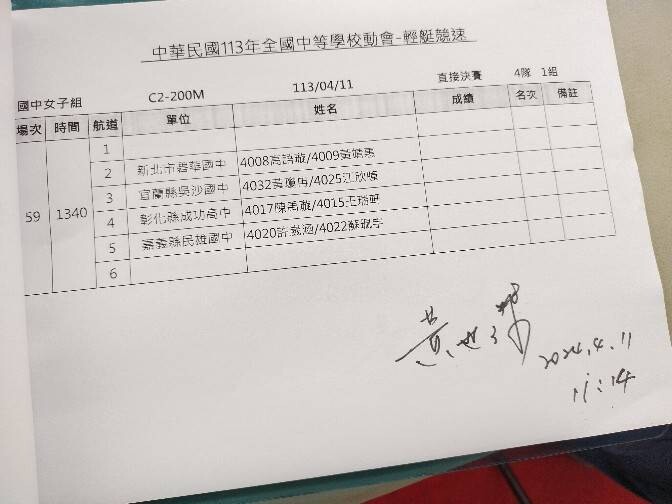 中華民國113年全國中等學校動會-輕艇競速
國中女子組 C2-200M 113/04/11 直接決賽 4隊 1組
場次 時間 航道 單位 姓名 成績 名次 備註
59 1340
1
2 新北市碧華國中 4008 /4009黃
3 宜蘭縣吳沙國中 4032黃 /4025江欣
4 彰化縣成功高中 4017陳禹璇/4015王
5 嘉義縣民雄國中 4020許 /4022蘇
6
黃
2024.4.11
11:14